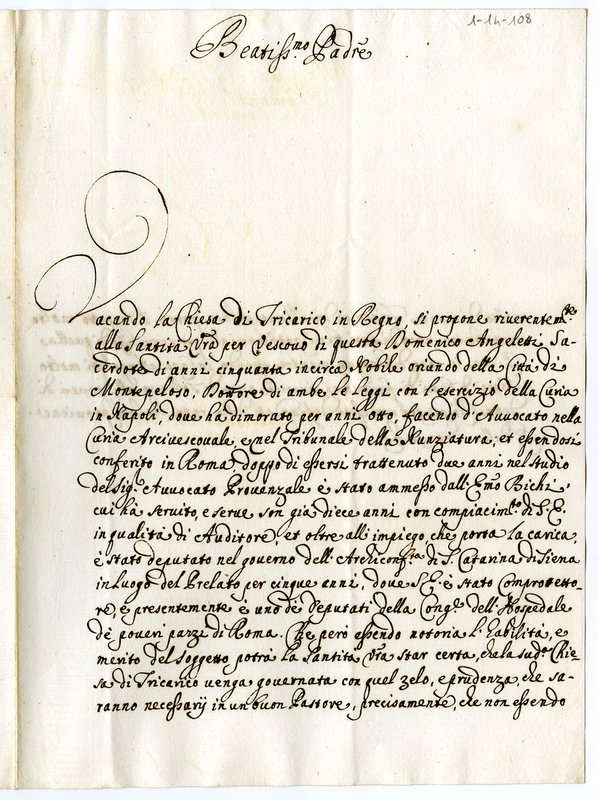 1-14-108
Beatiss.mo Padrē
Vacando la Chiesa di Tricarico in Regno, si propone riverentem.te
alla Santità Vr̃a per Vescovo di questa Domenico Angeletti Sa-
cerdote di anni cinquanta incirca Nobile oriundo della Città di
Montepeloso, Dottore di ambe le Leggi con l'esercizio della Curia
in Napoli, dove ha dimorato per anni otto, facendo d'Avvocato nella
Curia Arcivescovale, e nel Tribunale della Nunziatura, et essendosi
conferito in Roma, doppo di essersi trattenuto due anni nel studio
del Sig.r Avvocato Provenzale è stato ammesso dall'Em̃o Bichi,
cui hà servito, e serve son già diece anni con compiacim.to di S. E.
in qualità di Auditore, et oltre all'impiego, che porta la carica,
è stato deputato nel governo dell'Archiconf.ta di S. Catarina di Siena
in luogo del Prelato per cinque anni, dove S. E. è stato Comprotetto-
re, e presentemente è uno de Deputati della Cong.e dell'Hospedale
dè poveri pazzi di Roma. Che però essendo notoria l'habilità, e
merito del soggetto potrà la Santità Vr̃a star certa, che la sud.a Chie-
sa di Tricarico venga governata con quel zelo, e prudenza, che sa-
ranno necessarij in un buon Pastore, precisamente, che non essendo